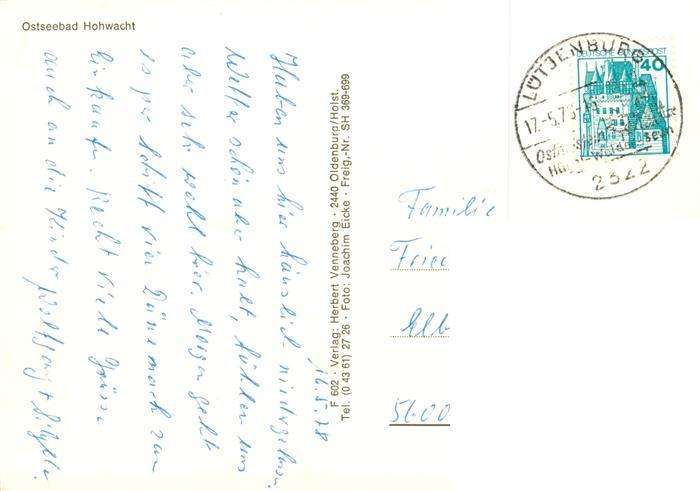 Ostseebad Hohwacht
16.5.78
Haben uns hier häuslich niedergelassen.
Wetter schön aber kalt, fühlen uns
aber sehr wohl hier. Morgen geht
es per Schiff Dänemark zum
Einkaufen. Recht viele Grüsse
auch an die Kinder Wolfgang +
F 602 · Verlag: Herbert Venneberg · 2440 Oldenburg/Holst.
Tel. (0 43 61) 27 26 · Foto: Joachim Eicke · Freig.-Nr. SH 369-699
DEUTSCHE BUNDESPOST
40
LÜTJENBURG
17.-5.78
2322
Familie
Frie
Elb
5600